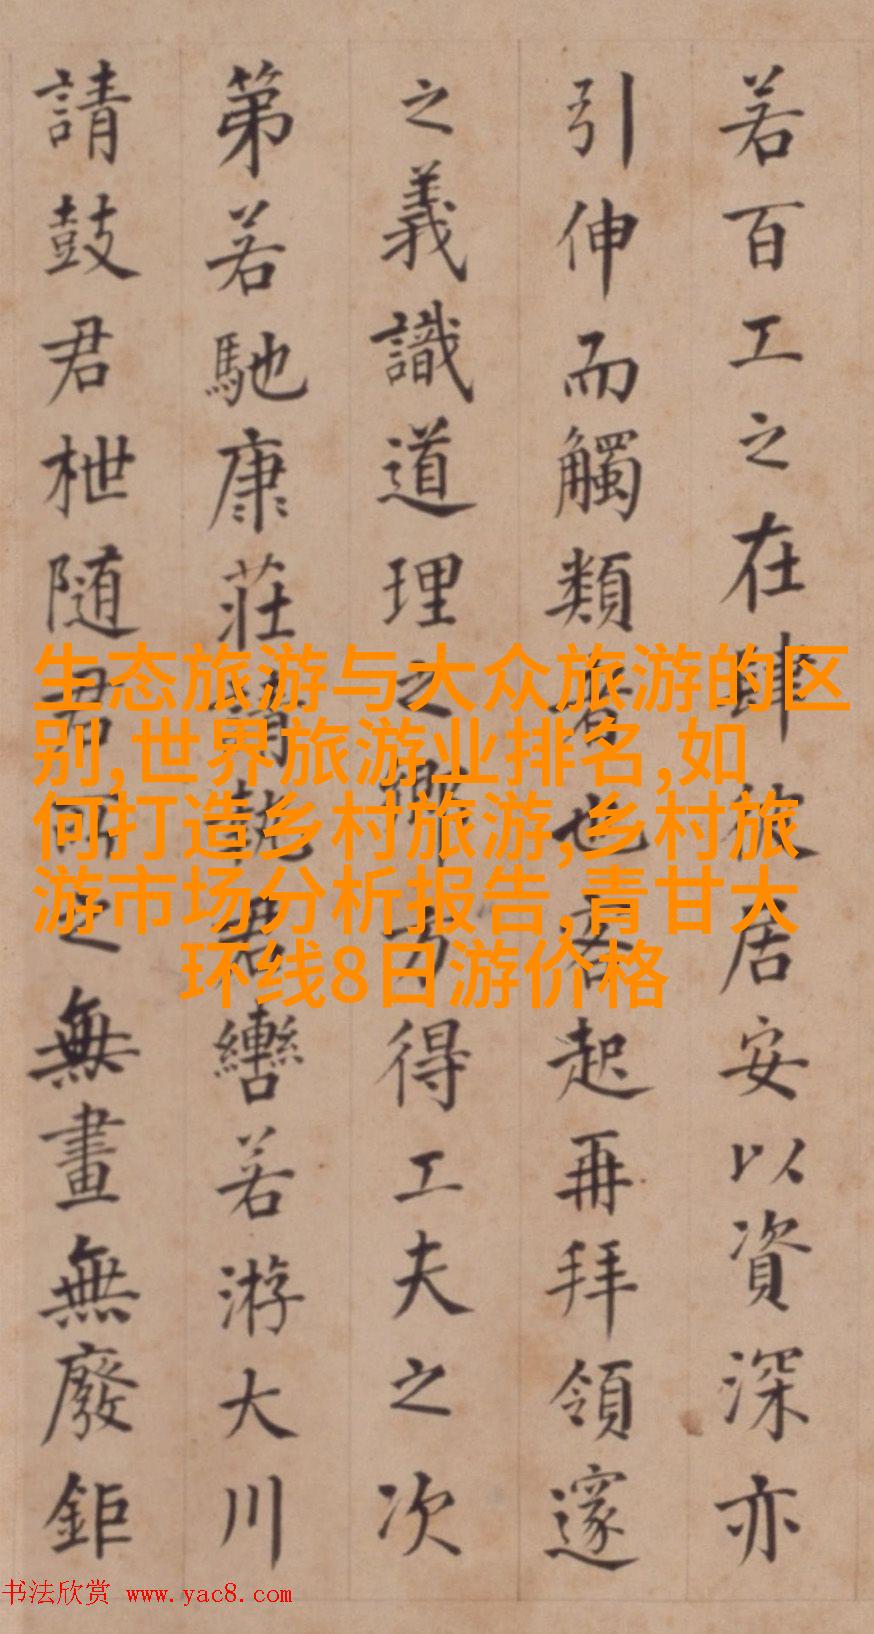 若百工之在肆居安以資深亦
引伸而觸類者也客起再拜領邃
之義識道理之鄉方得工夫之次
第若馳康莊請執君轡若游大川
請鼓君枻随君之無畫無廢鉅
生态旅游与大众旅游的区
别,世界旅游业排名,如
何打造乡村旅游,乡村旅
游市场分析报告,青甘大
环线8日游价格
书法欣赏 www.yac8.com